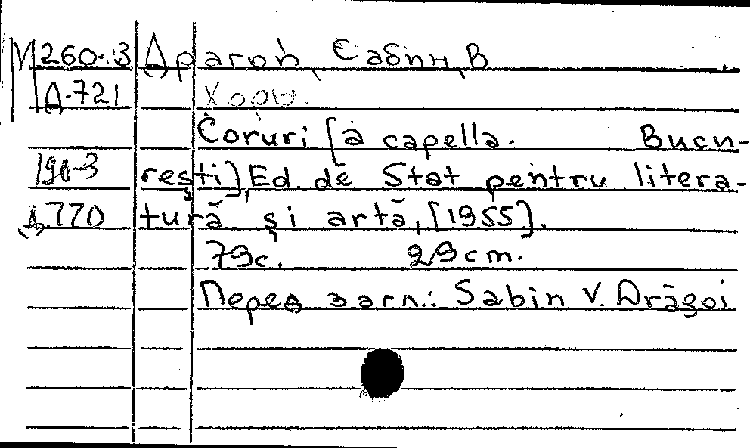 М260-3 Драгой, Сабин, В
Д-721 Хоры.
Coruri [a capella. Bucu-
190-3 rești], Ed. de Stat pentru litera-
770 tură și artă, [1955].
79с. 29cm.
Перед загл.: Sabin V. Drăgoi